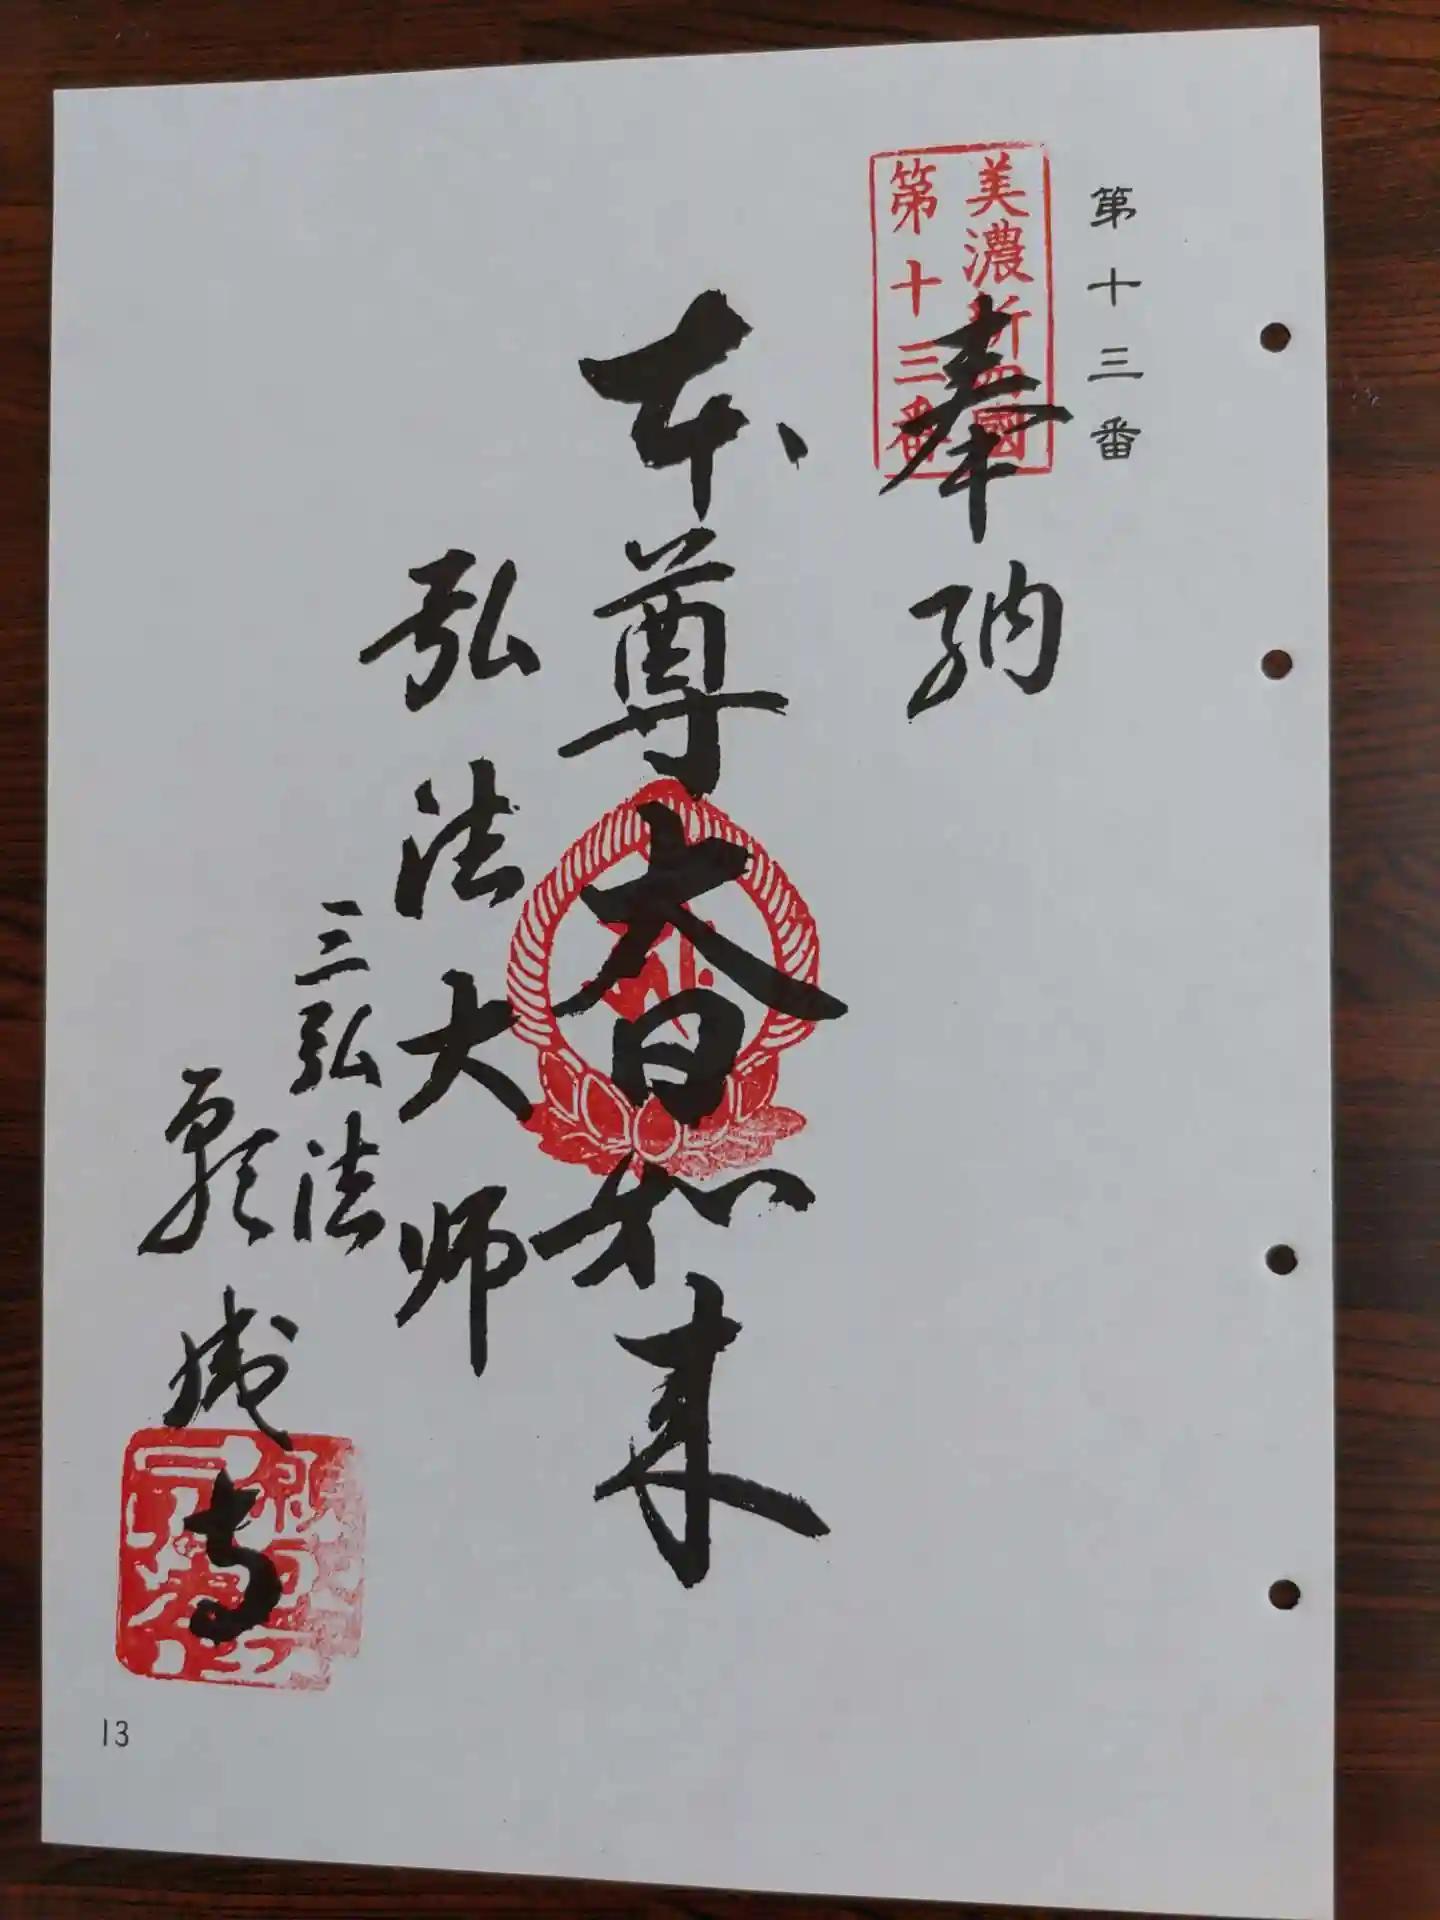 第十三番
美濃新四國
第十三番
奉納
本尊大日如来
弘法大师
三弘法
願成寺
13